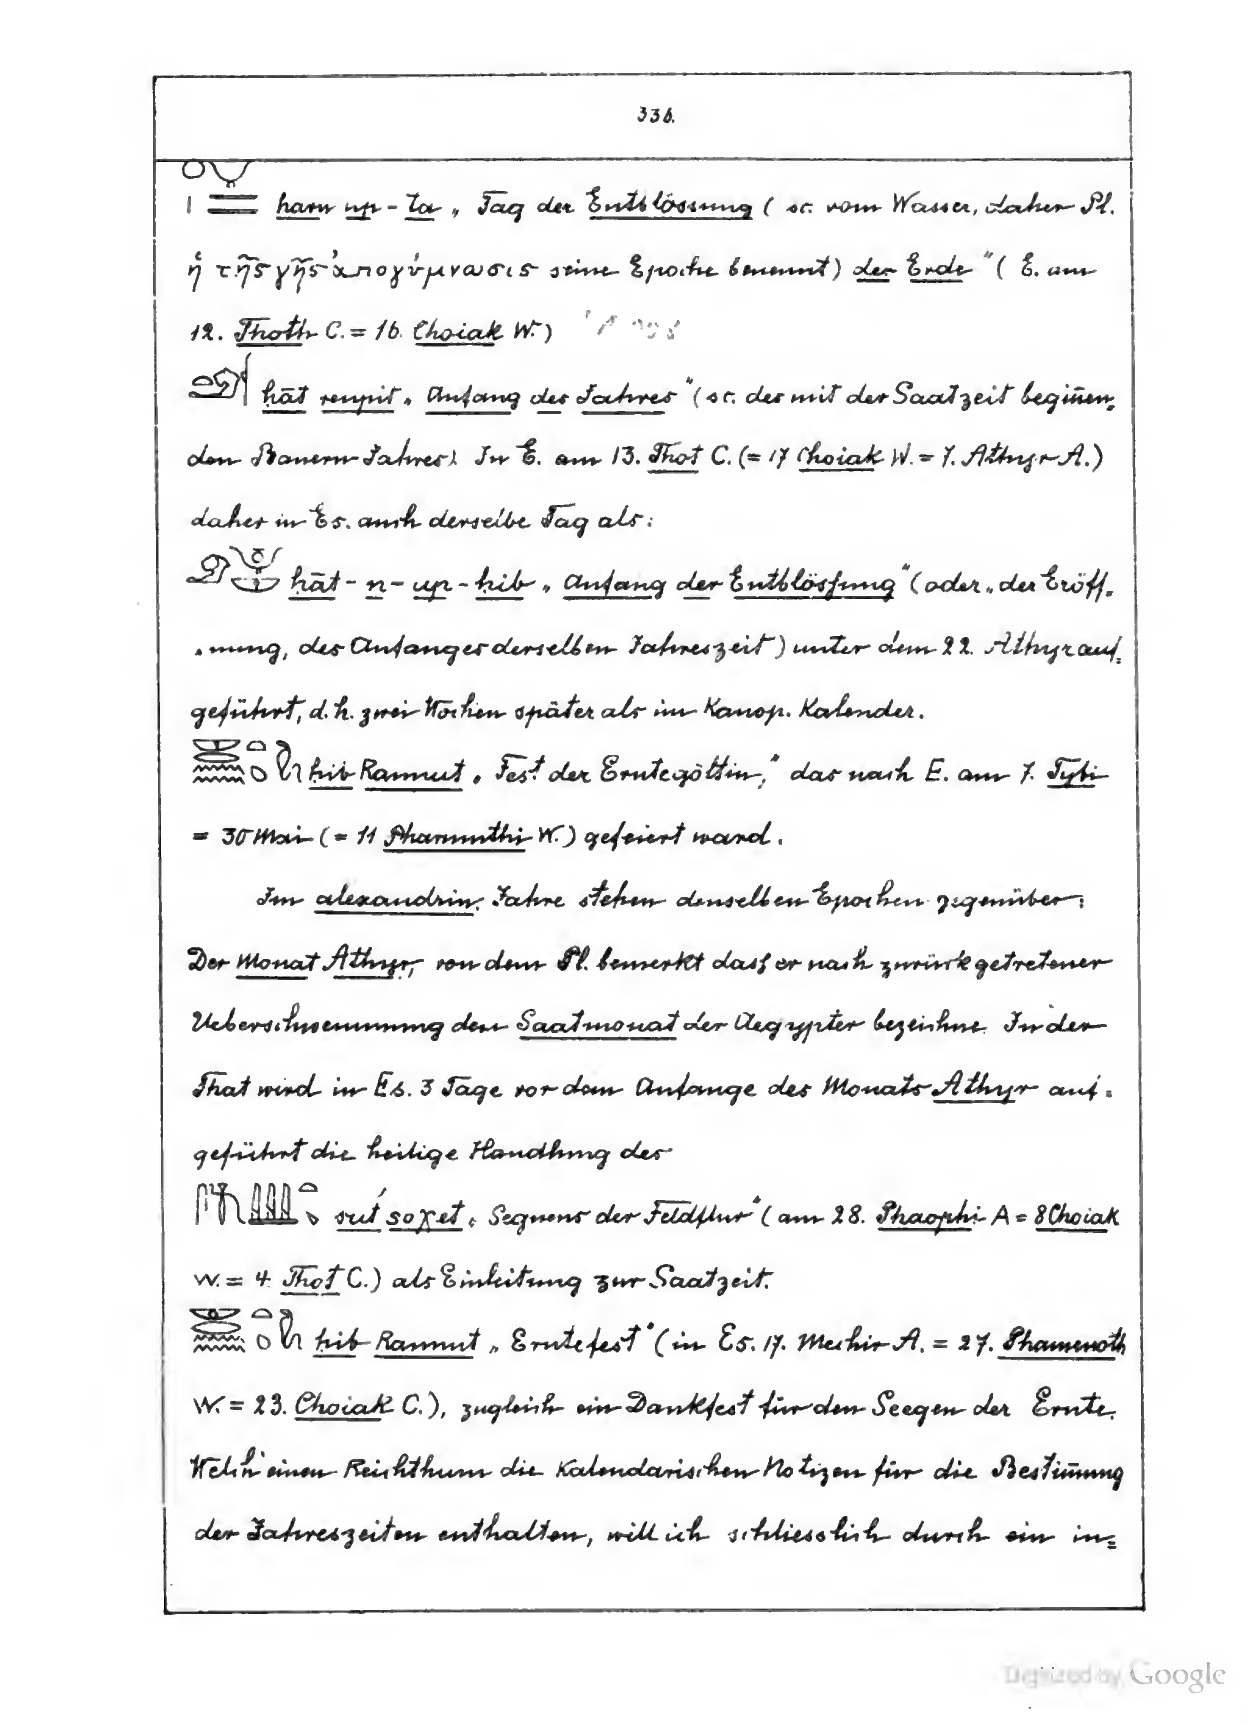 336.
haru up-ta „Tag der Entblössung (sc. vom Wasser, daher Pl.
ἡ τῆς γῆς ἀπογύμνωσις seine Epoche benennt) der Erde" (E. am
12. Thoth C. = 16. Choiak W.)
ḥāt renpit „Anfang des Jahres" (sc. des mit der Saatzeit begin̄en-
den Bauern-Jahres). In E. am 13. Thot C. (= 17 Choiak W. = 7. Athyr A.)
daher in Es. auch derselbe Tag als:
ḥāt-n-up-ḥib „Anfang der Entblössung" (oder „der Eröff-
nung, des Anfanges derselben Jahreszeit) unter dem 22. Athyr auf-
geführt, d.h. zwei Wochen später als im Kanop. Kalender.
ḥib Rannut „Fest der Erntegöttin," das nach E. am 7. Tybi
= 30 Mai (= 11 Pharmuthi W.) gefeiert ward.
Im alexandrin. Jahre stehen denselben Epochen gegenüber:
Der Monat Athyr, von dem Pl. bemerkt dass er nach zurückgetretener
Ueberschwemmung den Saatmonat der Aegypter bezeichne. In der
That wird in Es. 3 Tage vor dem Anfange des Monats Athyr auf-
geführt die heilige Handlung des
sut́ soχet „Segnens der Feldflur" (am 28. Phaophi A = 8 Choiak
W. = 4. Thot C.) als Einleitung zur Saatzeit.
ḥib Rannut „Erntefest" (in Es. 17. Mechir A. = 27. Phamenoth
W. = 23. Choiak C.), zugleich ein Dankfest für den Seegen der Ernte.
Welch' einen Reichthum die Kalendarischen Notizen für die Bestim̄ung
der Jahreszeiten enthalten, will ich schliesslich durch ein in-
Digitized by Google